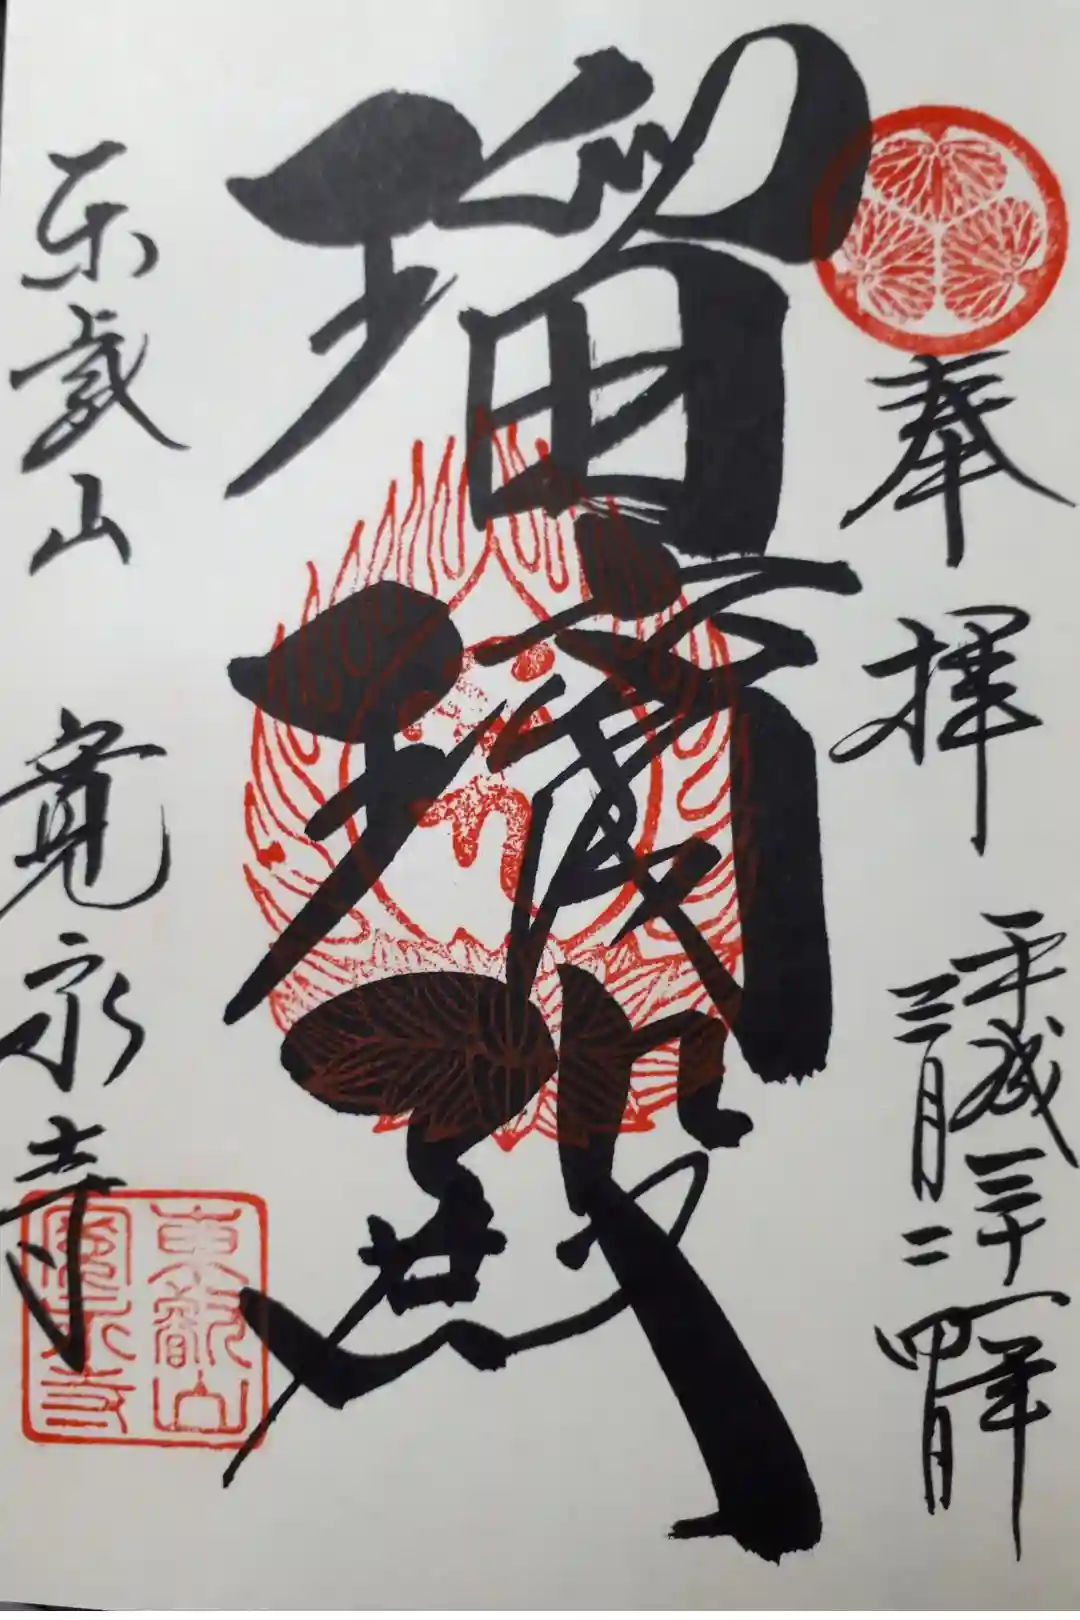 奉拝
平成三十一年
三月二四日
瑠璃殿
東叡山 寛永寺
東叡山
寛永寺